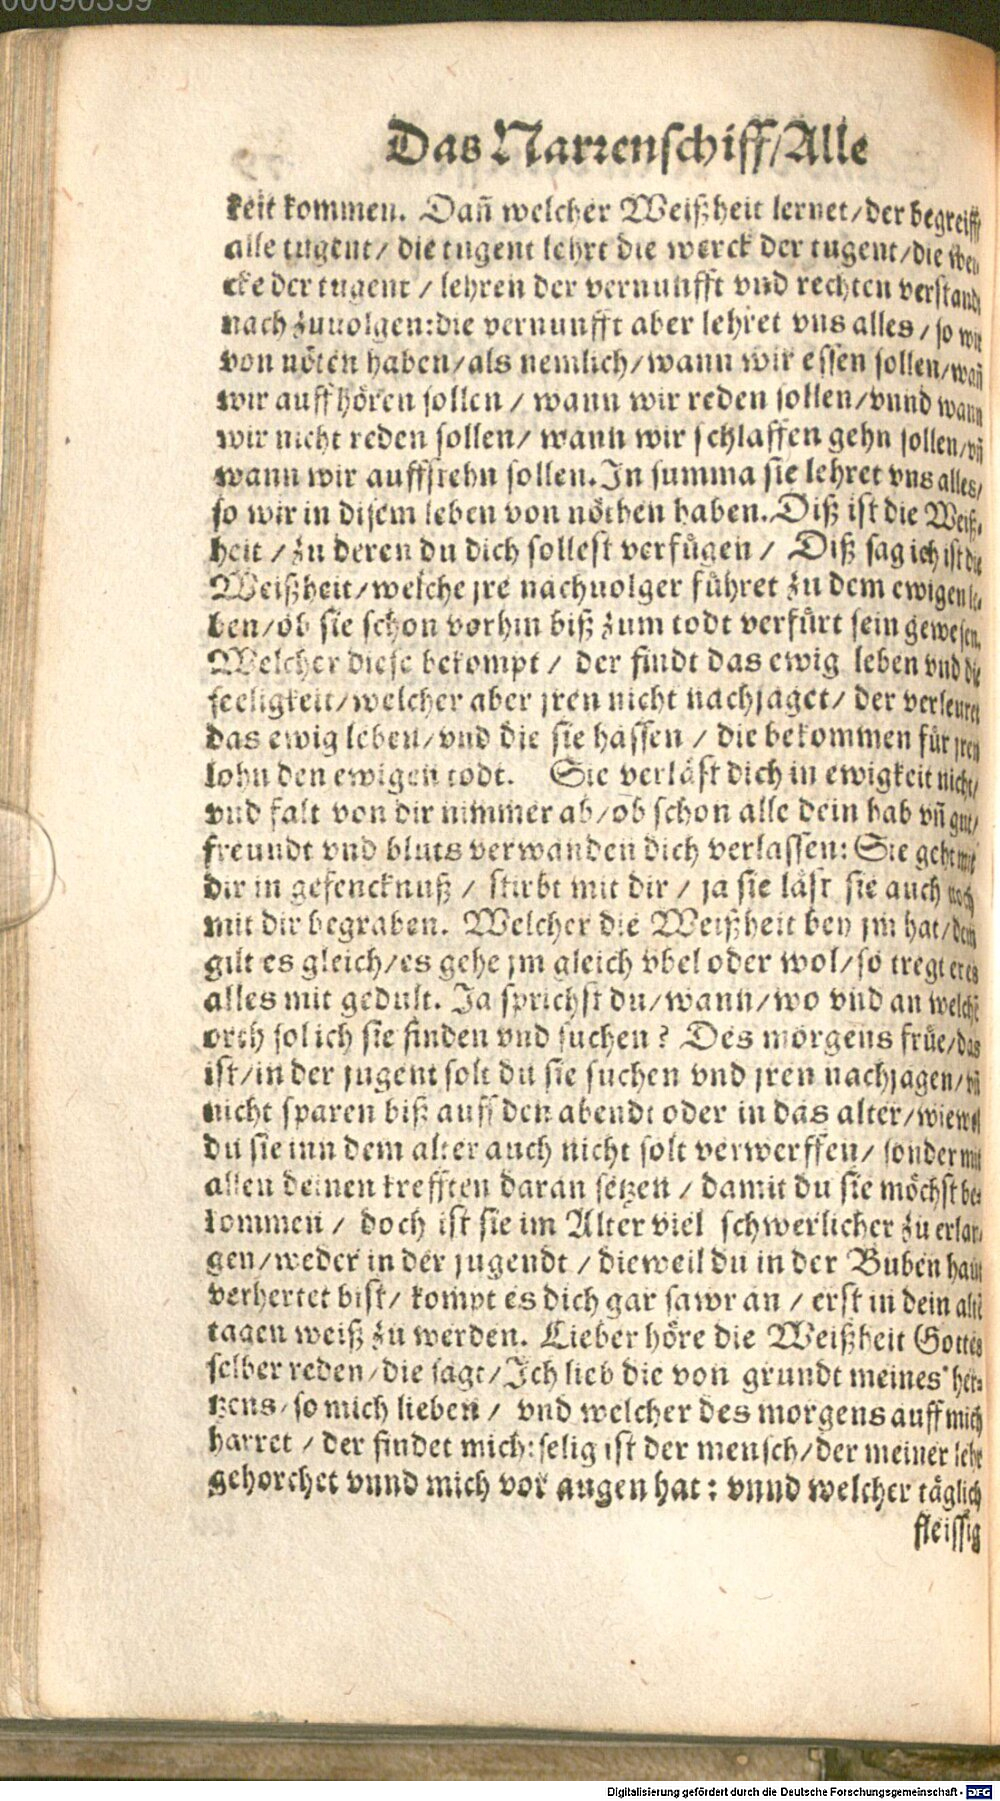 00090359
Das Narrenschiff/Alle
keit kommen. Dañ welcher Weißheit lernet/der begreifft
alle tugent/ die tugent lehrt die werck der tugent/die
cke der tugent / lehren der vernunfft vnd rechten verstandt
nach zuuolgen: die vernunfft aber lehret vns alles / so wir
von nöten haben/als nemlich/wann wir essen sollen/wañ
wir auffhören sollen / wann wir reden sollen/vnnd wann
wir nicht reden sollen/ wann wir schlaffen gehn sollen/vñ
wann wir auffstehn sollen. In summa sie lehret vns alles/
so wir in disem leben von nöthen haben. Diß ist die Weiß-
heit / zu deren du dich sollest verfügen / Diß sag ich ist die
Weißheit/welche jre nachuolger führet zu dem ewigen le-
ben/ob sie schon vorhin biß zum todt verfürt sein gewesen.
Welcher diese bekompt / der findt das ewig leben vnd die
seeligkeit/welcher aber jren nicht nachjaget/ der verleuret
das ewig leben/vnd die sie hassen / die bekommen für jren
lohn den ewigen todt. Sie verläst dich in ewigkeit nicht/
vnd falt von dir nimmer ab/ob schon alle dein hab vñ gut/
freundt vnd bluts verwanden dich verlassen: Sie geht mit
dir in gefencknuß / stirbt mit dir / ja sie läst sie auch noch
mit dir begraben. Welcher die Weißheit bey jm hat/dem
gilt es gleich/es gehe jm gleich vbel oder wol/so tregt er es
alles mit gedult. Ja sprichst du/wann/wo vnd an welchẽ
orth sol ich sie finden vnd suchen? Des morgens früe/das
ist/in der jugent solt du sie suchen vnd jren nachjagen/vñ
nicht sparen biß auff den abendt oder in das alter/wiewol
du sie inn dem alter auch nicht solt verwerffen/ sonder mit
allen deinen krefften daran setzen / damit du sie möchst be-
kommen / doch ist sie im Alter viel schwerlicher zu erlan-
gen/weder in der jugendt / dieweil du in der Buben haut
verhertet bist/ kompt es dich gar sawr an / erst in dein altẽ
tagen weiß zu werden. Lieber höre die Weißheit Gottes
selber reden/die sagt/Ich lieb die von grundt meines her-
tzens/so mich lieben / vnd welcher des morgens auff mich
harret / der findet mich: selig ist der mensch/der meiner lehr
gehorchet vnnd mich vor augen hat: vnnd welcher täglich
fleissig
Digitalisierung gefördert durch die Deutsche Forschungsgemeinschaft - DFG